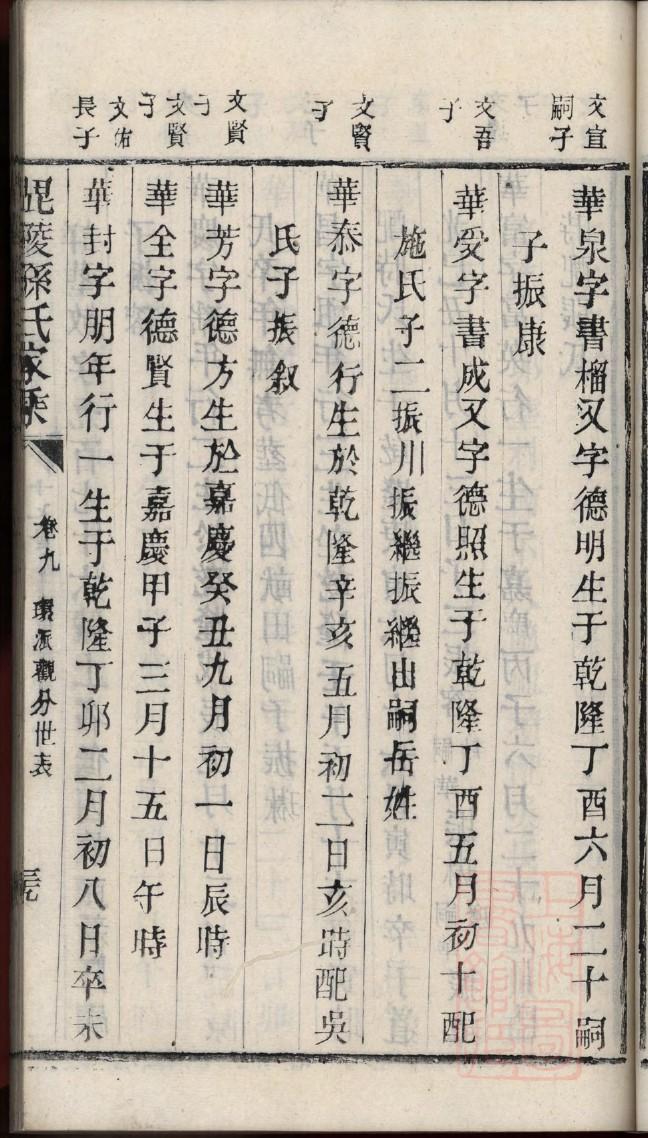 文宜
嗣子
華泉字書榴又字德明生于乾隆丁酉六月二十嗣
子振康
文吾
子
華受字書成又字德照生于乾隆丁酉五月初十配
施氏子二振川振繼振繼出嗣岳姓
文賢
子
華泰字德行生於乾隆辛亥五月初二日亥時配吳
氏子振叙
文賢
子
華芳字德方生於嘉慶癸丑九月初一日辰時
文賢
子
華全字德賢生于嘉慶甲子三月十五日午時
文佑
長子
華封字朋年行一生于乾隆丁卯二月初八日卒未
毘陵孫氏家乘
卷九 環派觀分世表